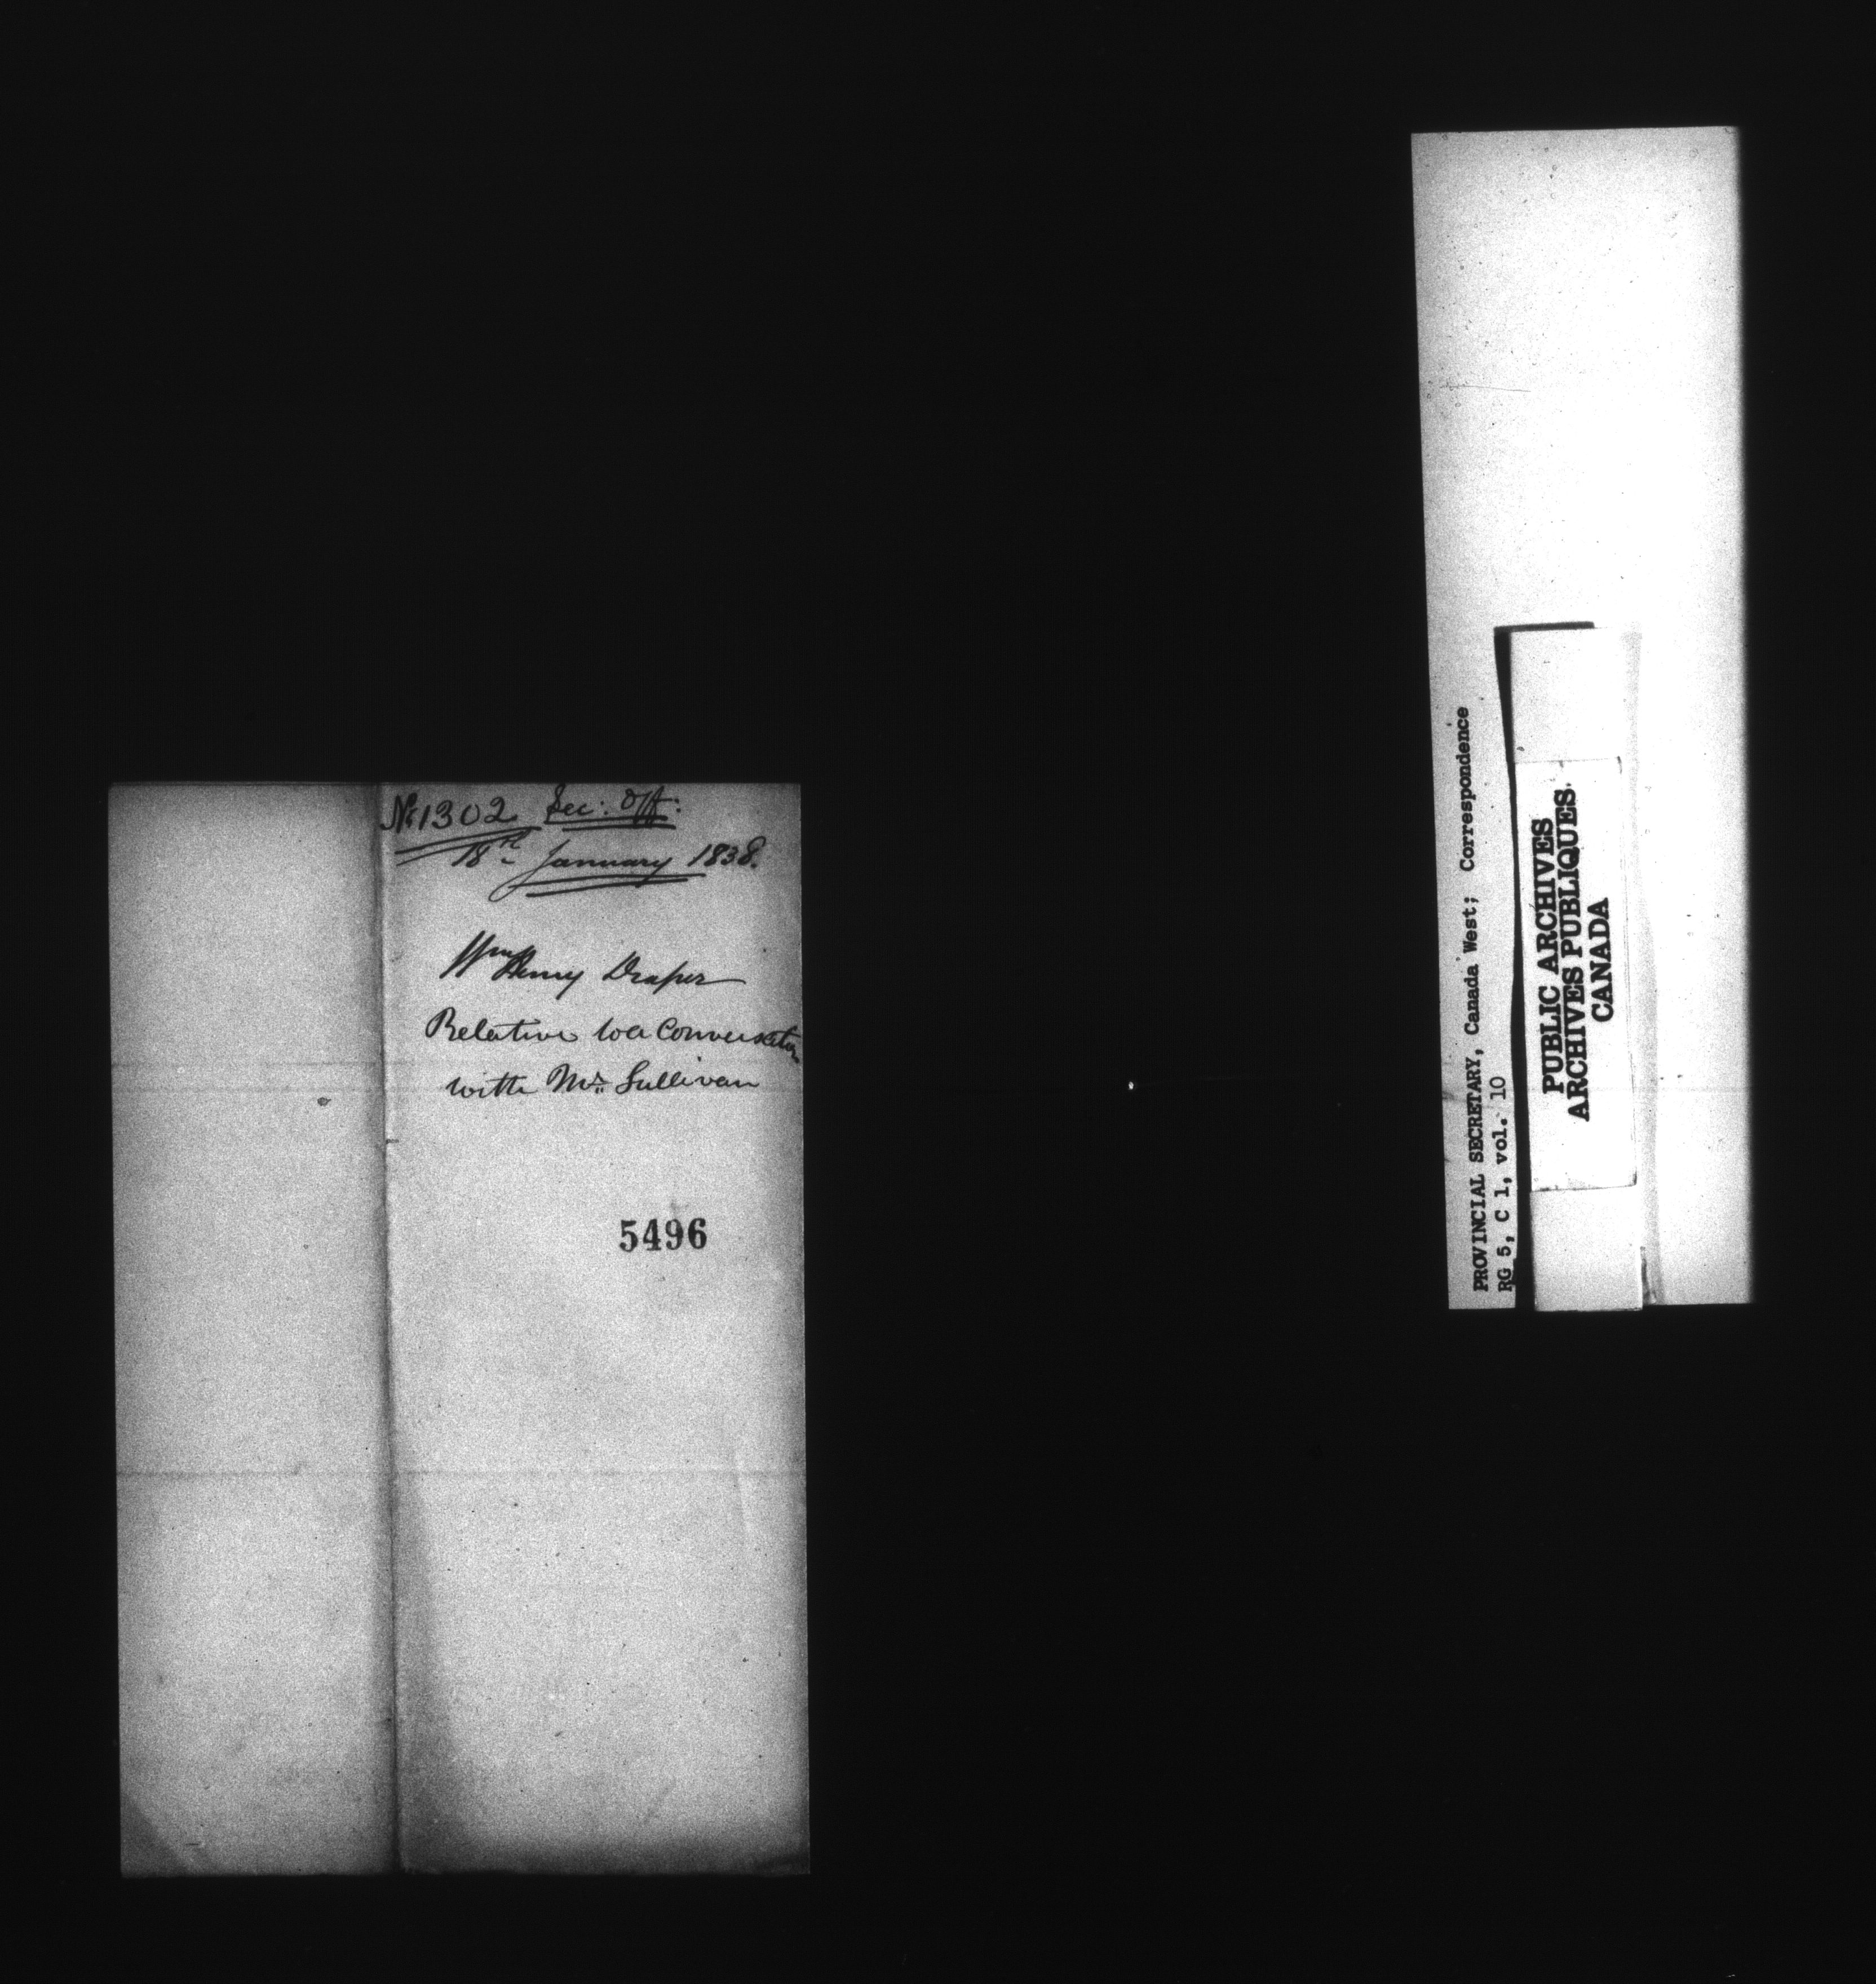 No. 1302 Sec: Off:
18th January 1838.
Wm Henry Draper
Relative to a Conversation
with Mr. Sullivan
5496
PROVINCIAL SECRETARY, Canada West; Correspondence
RG 5, C 1, vol. 10
PUBLIC ARCHIVES
ARCHIVES PUBLIQUES
CANADA